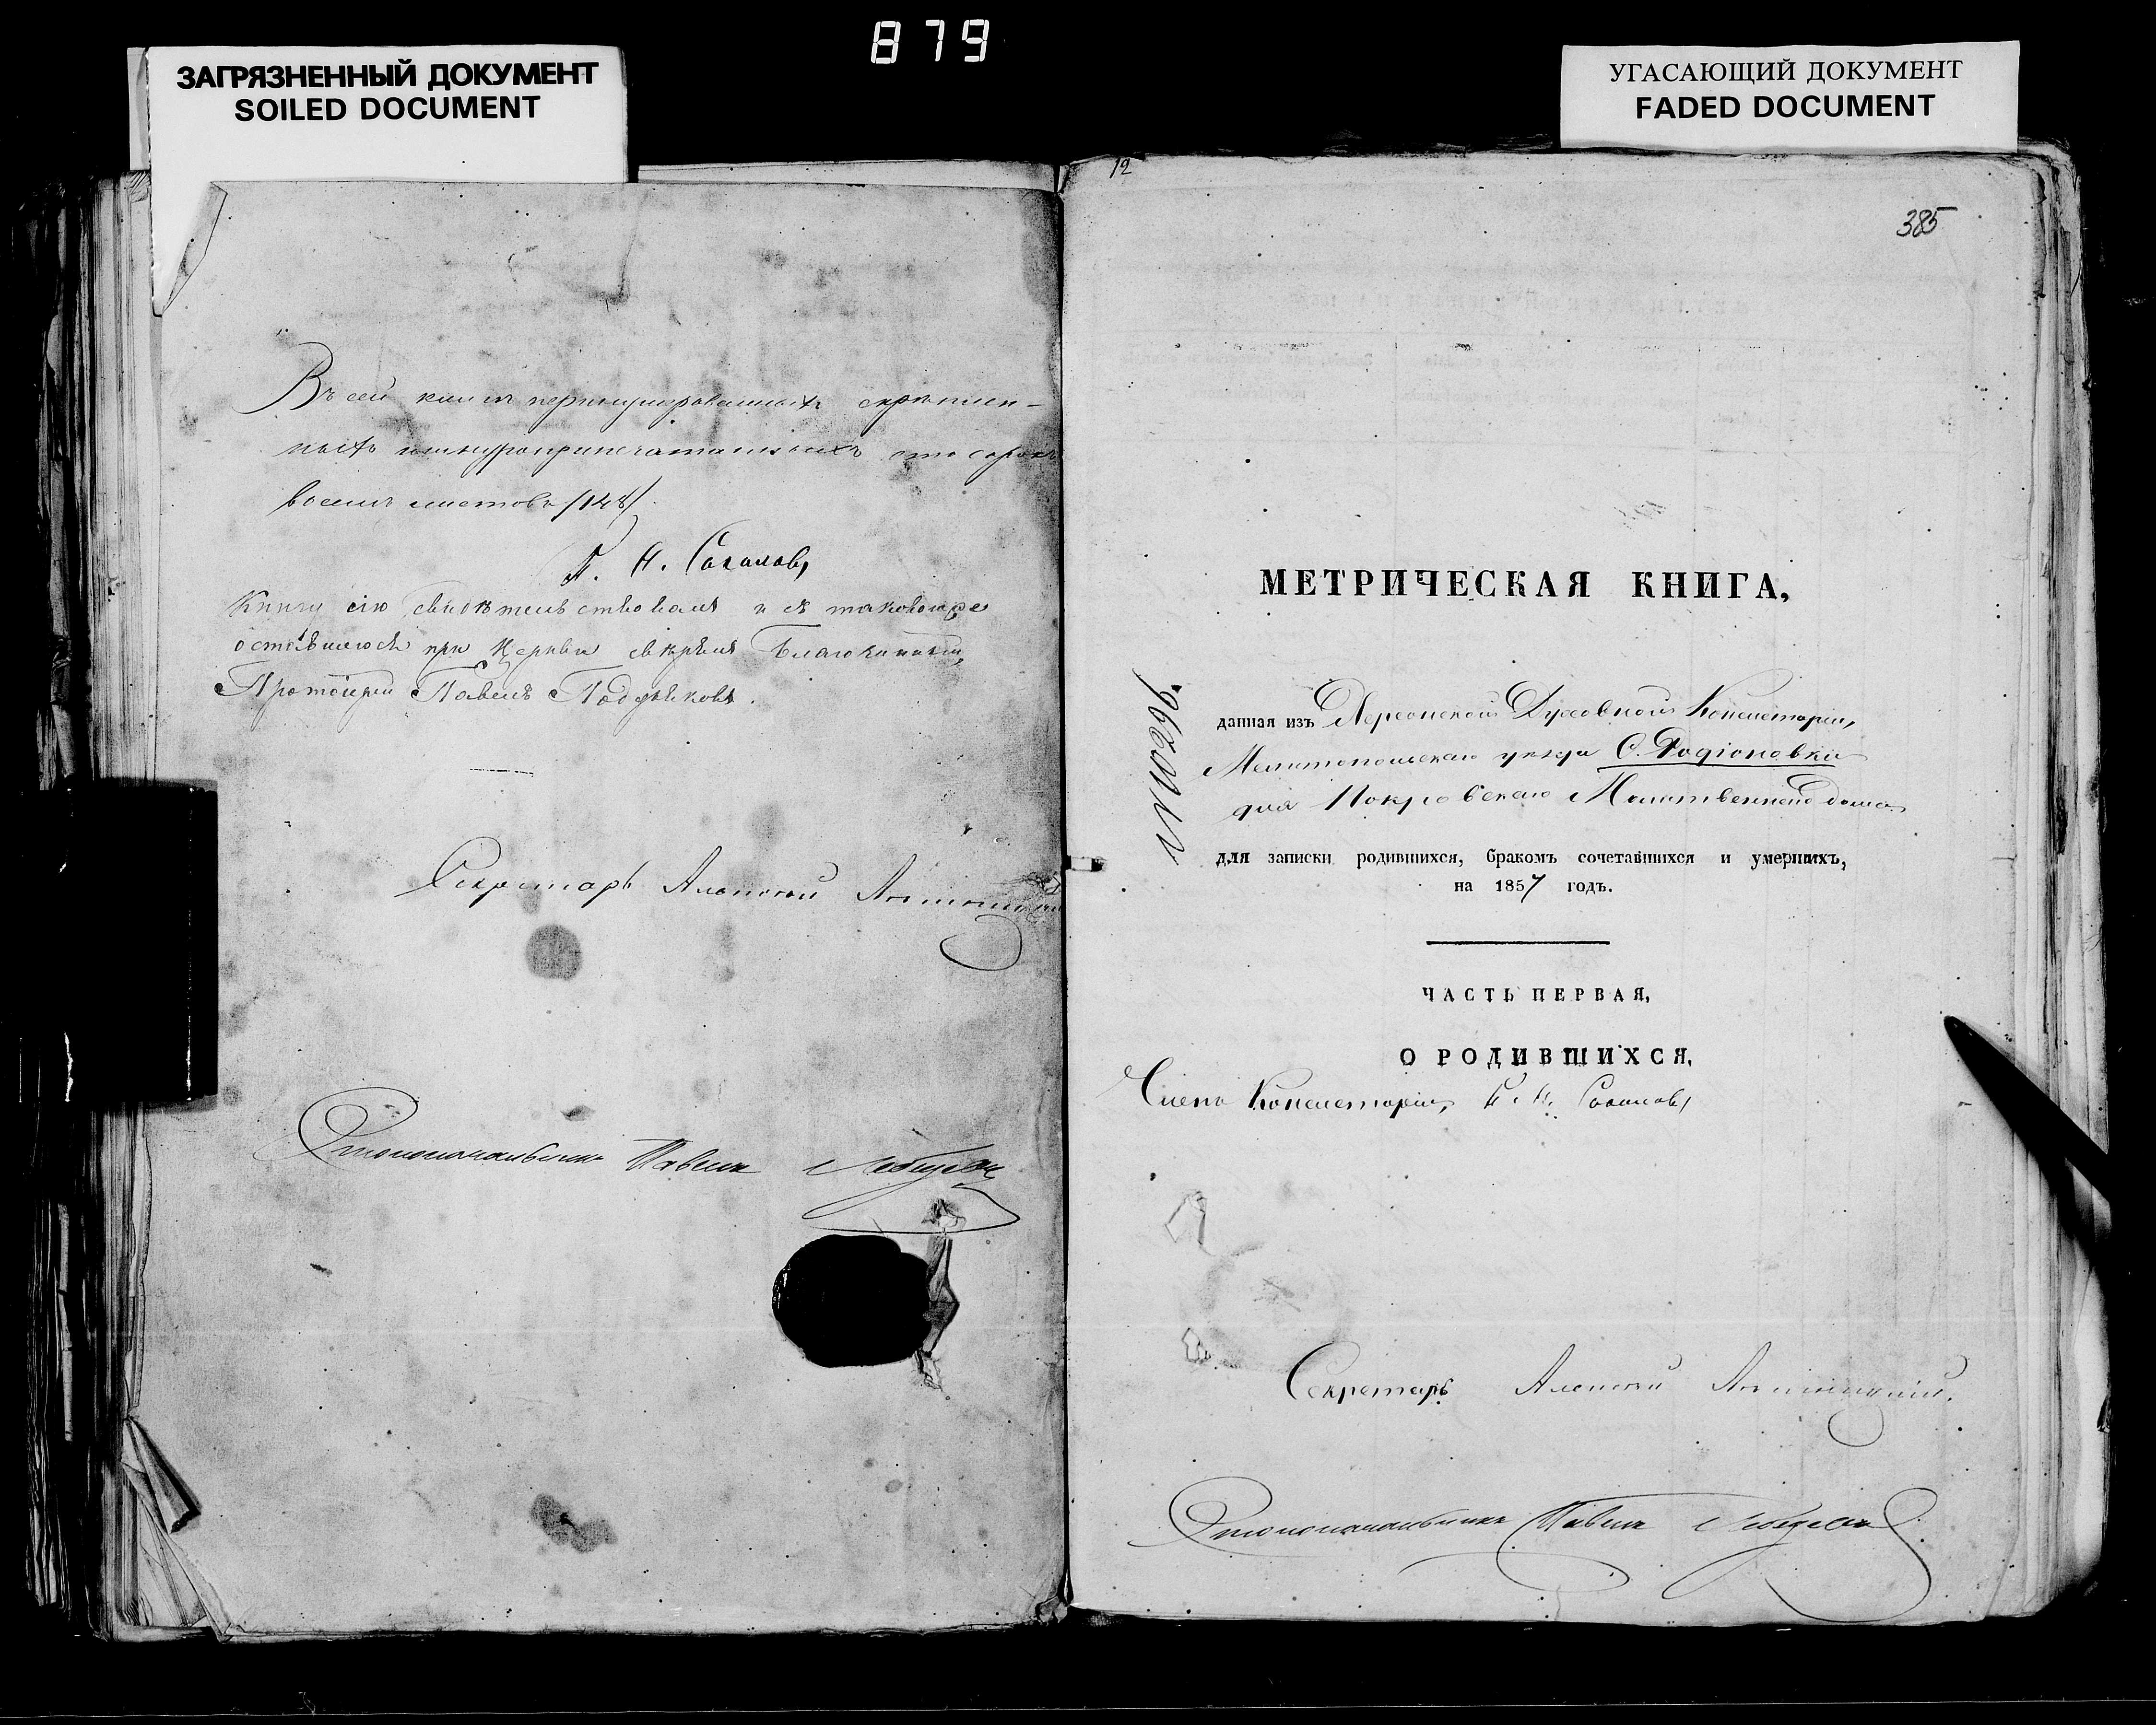 879
ЗАГРЯЗНЕННЫЙ ДОКУМЕНТ
SOILED DOCUMENT
УГАСАЮЩИЙ ДОКУМЕНТ
FADED DOCUMENT
Въ сей книгѣ перенумерованныхъ скрѣплен-
ныхъ шнуроприпечатанныхъ сто сорокъ
восемь листовъ /148/.
Книгу сію свидѣтельствовалъ и съ таковою же
оставшеюся при Церкви свѣрялъ Благочинный,
Протоіерей Павелъ
Секретарь Алексѣй
Столоначальникъ Павелъ Лебедевъ
12
385
МЕТРИЧЕСКАЯ КНИГА,
№ 10296.
данная изъ Херсонской Духовной Консисторіи,
Мелитопольскаго уѣзда С. Родіоновки
для Покровскаго Молитвеннаго дома
для записки родившихся, бракомъ сочетавшихся и умершихъ,
на 1857 годъ.
ЧАСТЬ ПЕРВАЯ,
О РОДИВШИХСЯ.
Членъ Консисторіи,
Секретарь Алексѣй
Столоначальникъ Павелъ Лебедевъ